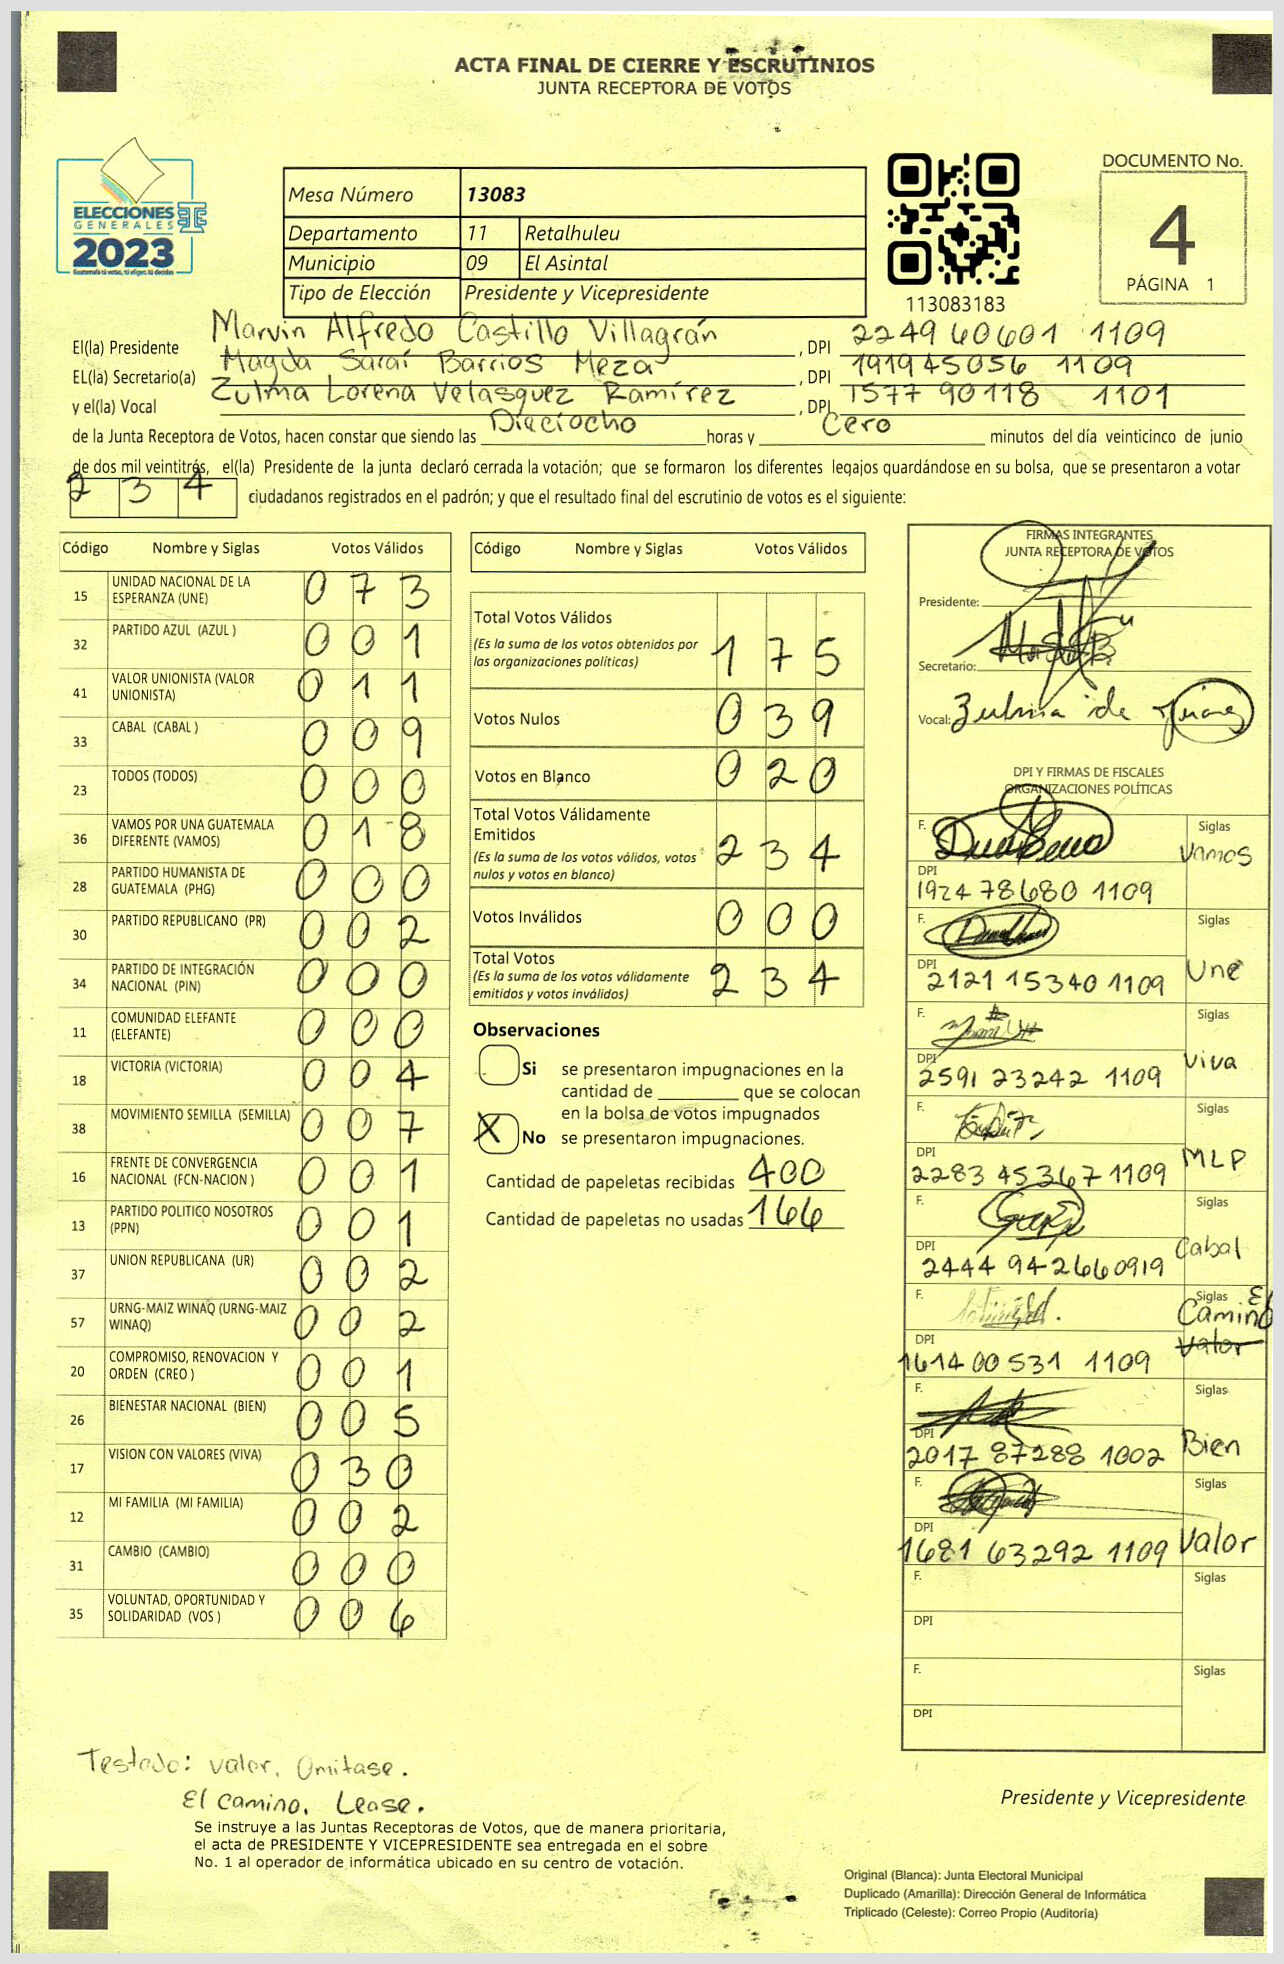 ACTA FINAL DE CIERRE Y ESCRUTINIOS
JUNTA RECEPTORA DE VOTOS
ELECCIONES
GENERALES
2023
Mesa Número 13083
Departamento 11 Retalhuleu
Municipio 09 El Asintal
Tipo de Elección Presidente y Vicepresidente
113083183
DOCUMENTO No.
4
PÁGINA 1
El(la) Presidente Marvin Alfredo Castillo Villagrán , DPI 2249 60601 1109
EL(la) Secretario(a) Magda Saraí Barrios Meza , DPI 1919 45056 1109
y el(la) Vocal Zulma Lorena Velasquez Ramírez , DPI 1577 90118 1101
de la Junta Receptora de Votos, hacen constar que siendo las Dieciocho horas y Cero minutos del día veinticinco de junio
de dos mil veintitrés, el(la) Presidente de la junta declaró cerrada la votación; que se formaron los diferentes legajos guardándose en su bolsa, que se presentaron a votar
2 3 4 ciudadanos registrados en el padrón; y que el resultado final del escrutinio de votos es el siguiente:
Código Nombre y Siglas Votos Válidos
15 UNIDAD NACIONAL DE LA ESPERANZA (UNE) 0 7 3
32 PARTIDO AZUL (AZUL ) 0 0 1
41 VALOR UNIONISTA (VALOR UNIONISTA) 0 1 1
33 CABAL (CABAL ) 0 0 9
23 TODOS (TODOS) 0 0 0
36 VAMOS POR UNA GUATEMALA DIFERENTE (VAMOS) 0 1 8
28 PARTIDO HUMANISTA DE GUATEMALA (PHG) 0 0 0
30 PARTIDO REPUBLICANO (PR) 0 0 2
34 PARTIDO DE INTEGRACIÓN NACIONAL (PIN) 0 0 0
11 COMUNIDAD ELEFANTE (ELEFANTE) 0 0 0
18 VICTORIA (VICTORIA) 0 0 4
38 MOVIMIENTO SEMILLA (SEMILLA) 0 0 7
16 FRENTE DE CONVERGENCIA NACIONAL (FCN-NACION ) 0 0 1
13 PARTIDO POLITICO NOSOTROS (PPN) 0 0 1
37 UNION REPUBLICANA (UR) 0 0 2
57 URNG-MAIZ WINAQ (URNG-MAIZ WINAQ) 0 0 2
20 COMPROMISO, RENOVACION Y ORDEN (CREO ) 0 0 1
26 BIENESTAR NACIONAL (BIEN) 0 0 5
17 VISION CON VALORES (VIVA) 0 3 0
12 MI FAMILIA (MI FAMILIA) 0 0 2
31 CAMBIO (CAMBIO) 0 0 0
35 VOLUNTAD, OPORTUNIDAD Y SOLIDARIDAD (VOS ) 0 0 6
Código Nombre y Siglas Votos Válidos
Total Votos Válidos
(Es la suma de los votos obtenidos por las organizaciones políticas) 1 7 5
Votos Nulos 0 3 9
Votos en Blanco 0 2 0
Total Votos Válidamente Emitidos
(Es la suma de los votos válidos, votos nulos y votos en blanco) 2 3 4
Votos Inválidos 0 0 0
Total Votos
(Es la suma de los votos válidamente emitidos y votos inválidos) 2 3 4
Observaciones
Si se presentaron impugnaciones en la
cantidad de ________ que se colocan
en la bolsa de votos impugnados
X No se presentaron impugnaciones.
Cantidad de papeletas recibidas 400
Cantidad de papeletas no usadas 166
FIRMAS INTEGRANTES
JUNTA RECEPTORA DE VOTOS
Presidente:
Secretario:
Vocal: Zulma de
DPI Y FIRMAS DE FISCALES
ORGANIZACIONES POLÍTICAS
F. Siglas Vamos
DPI 1924 78680 1109
F. Siglas Une
DPI 2121 15340 1109
F. Siglas Viva
DPI 2591 23242 1109
F. Siglas MLP
DPI 2283 45367 1109
F. Siglas Cabal
DPI 2444 94266 0919
F. Siglas El Camino Valor
DPI 1614 00531 1109
F. Siglas Bien
DPI 2017 87288 1002
F. Siglas Valor
DPI 1681 63292 1109
F. Siglas
DPI
F. Siglas
DPI
Testado: valor, Omitase.
El Camino. Lease.
Presidente y Vicepresidente
Se instruye a las Juntas Receptoras de Votos, que de manera prioritaria,
el acta de PRESIDENTE Y VICEPRESIDENTE sea entregada en el sobre
No. 1 al operador de informática ubicado en su centro de votación.
Original (Blanca): Junta Electoral Municipal
Duplicado (Amarilla): Dirección General de Informática
Triplicado (Celeste): Correo Propio (Auditoría)